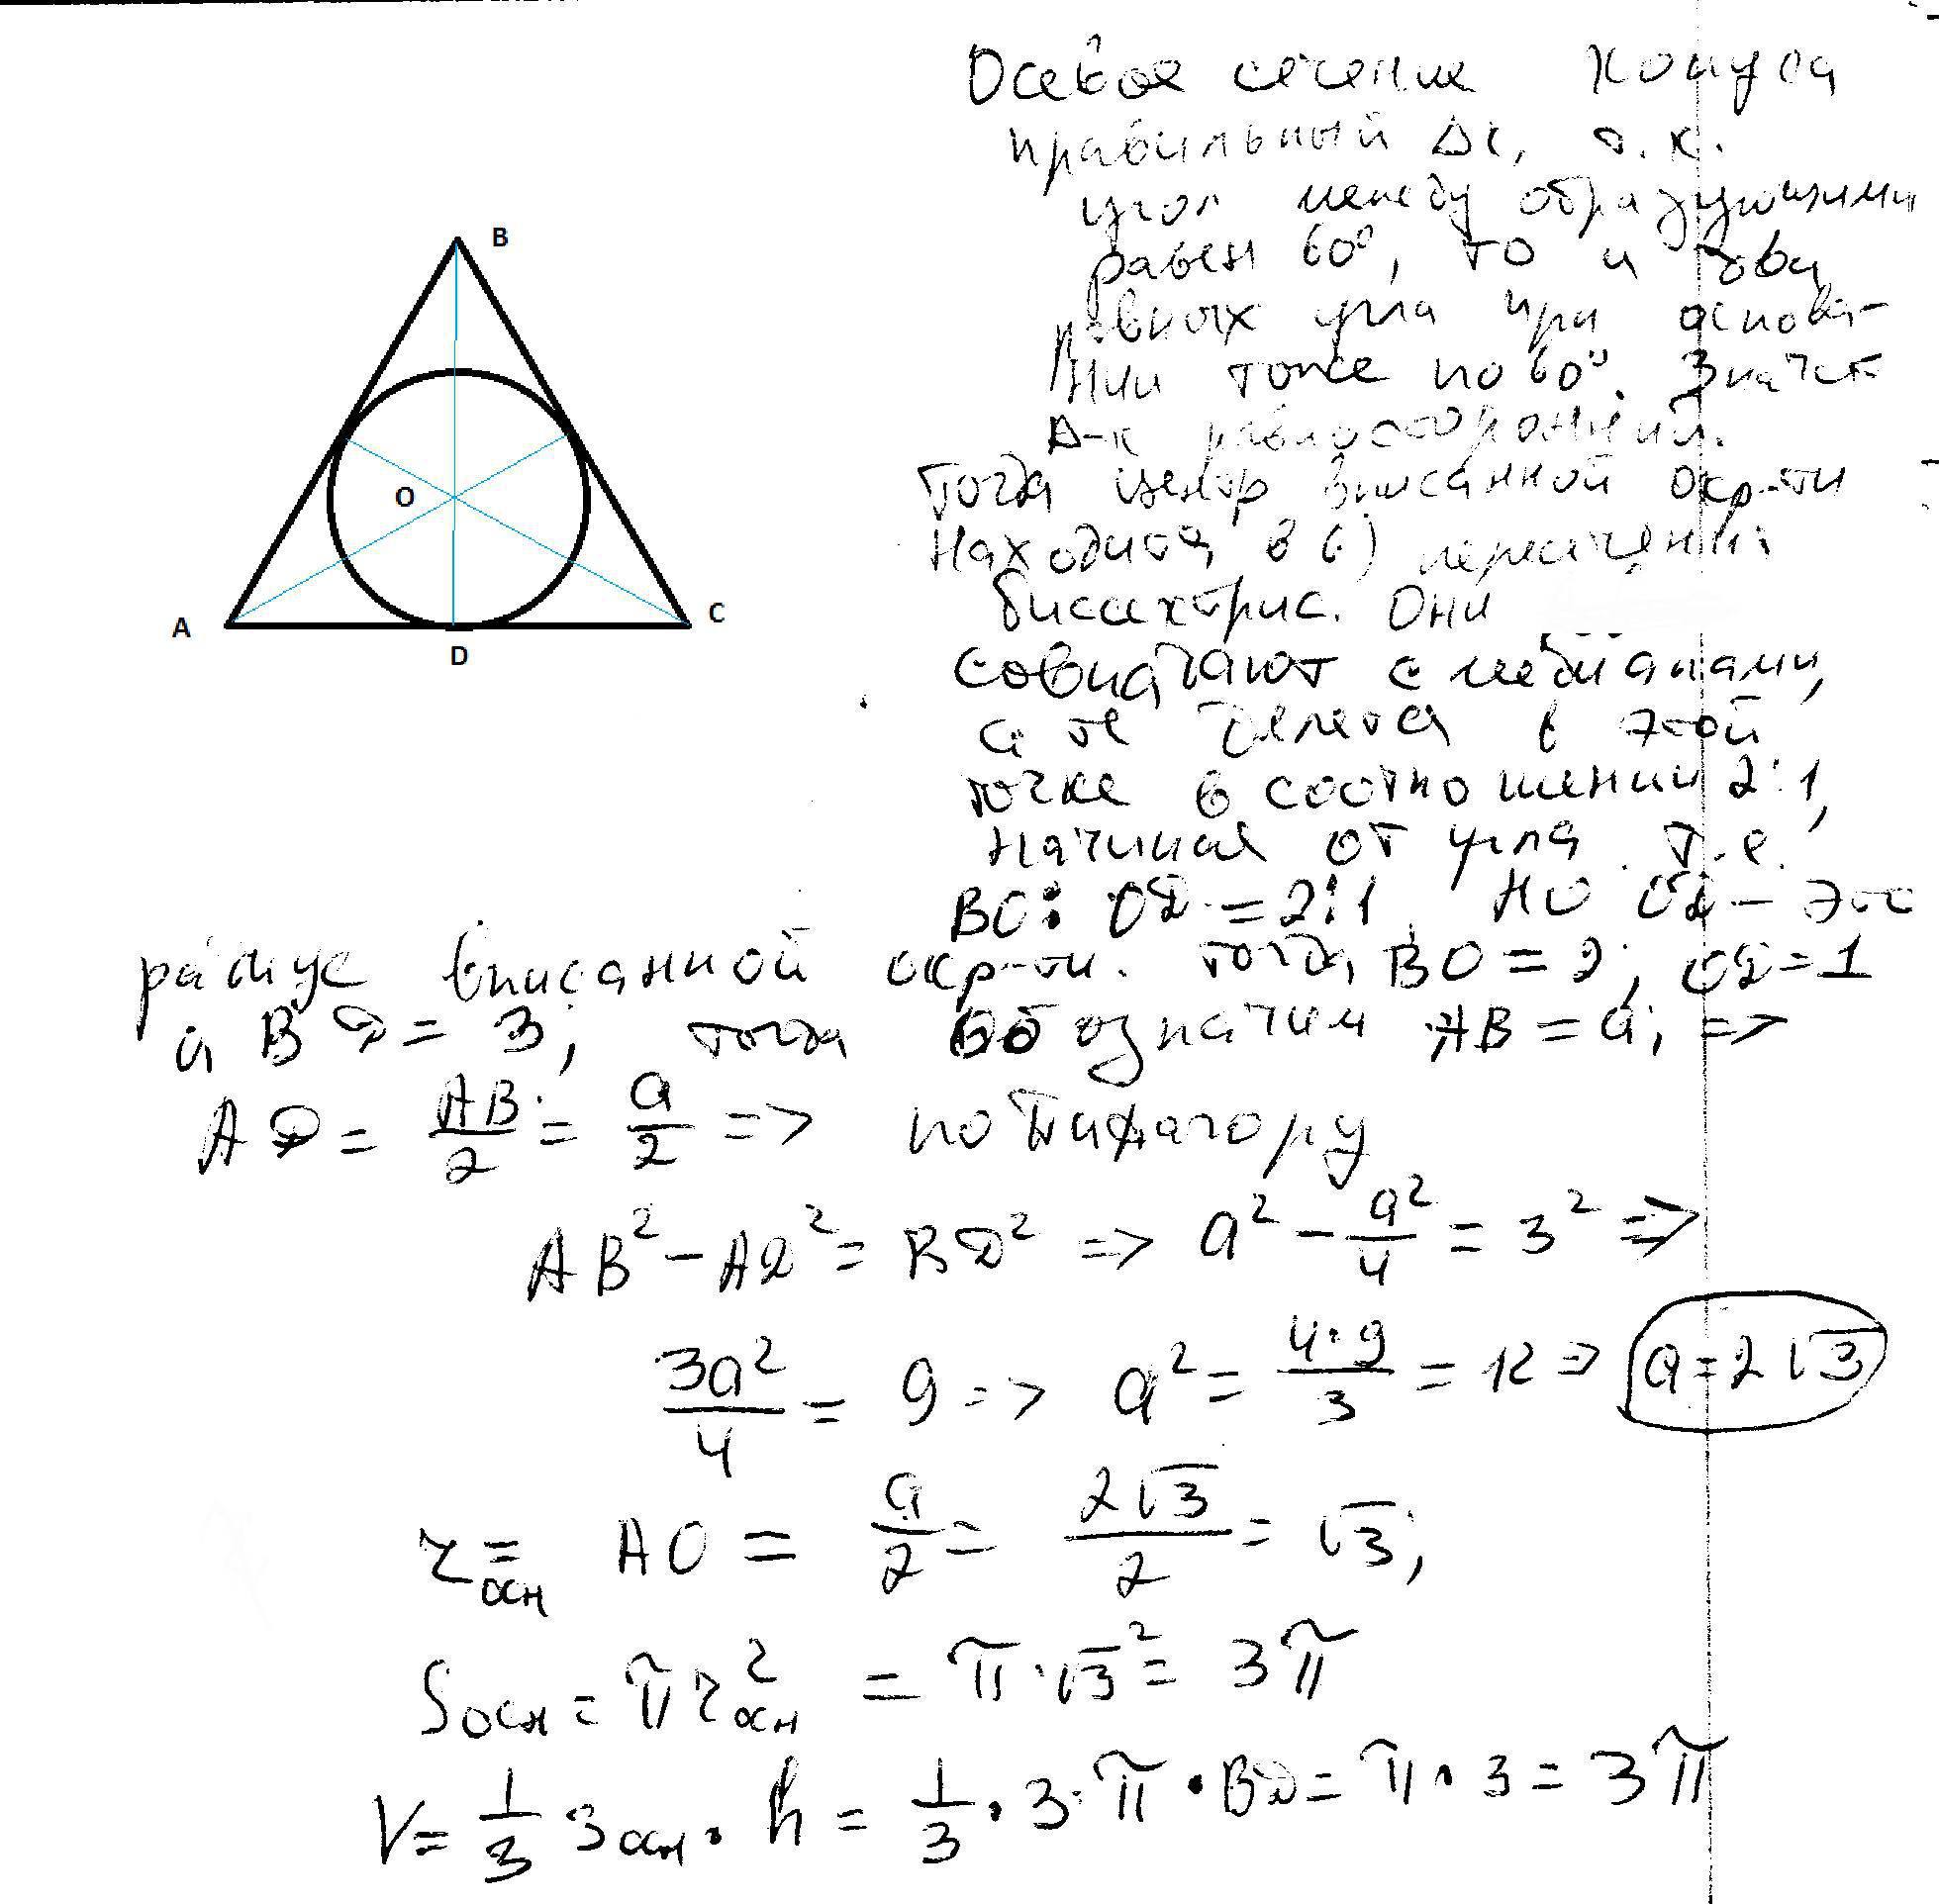 B
O
A
C
D
Осевое сечение конуса
правильный Δк, т.к.
угол между образующими
равен 60⁰, то и два
равных угла при основа-
нии тоже по 60⁰. Значит
Δ-к равносторонний.
Тогда центр вписанной окр-ти
находится в () пересечения
биссектрис. Они
совпадают с медианами,
а те делятся в этой
точке в соотношении 2:1,
начиная от угла. т.е.
BO: OD = 2:1, но OD – это
радиус вписанной окр-ти. тогда BO = 2; OD = 1
а BD = 3; тогда обозначим AB = a; =>
AD = AB/2 = a/2 => по Пифагору
AB² – AD² = BD² => a² – a²/4 = 3² =>
3a²/4 = 9 => a² = 4·9/3 = 12 => a = 2√3
r осн = AO = a/2 = 2√3/2 = √3;
Sосн = π r² осн = π·√3² = 3π
V = 1/3 Sосн · h = 1/3 · 3 · π · BD = π · 3 = 3π